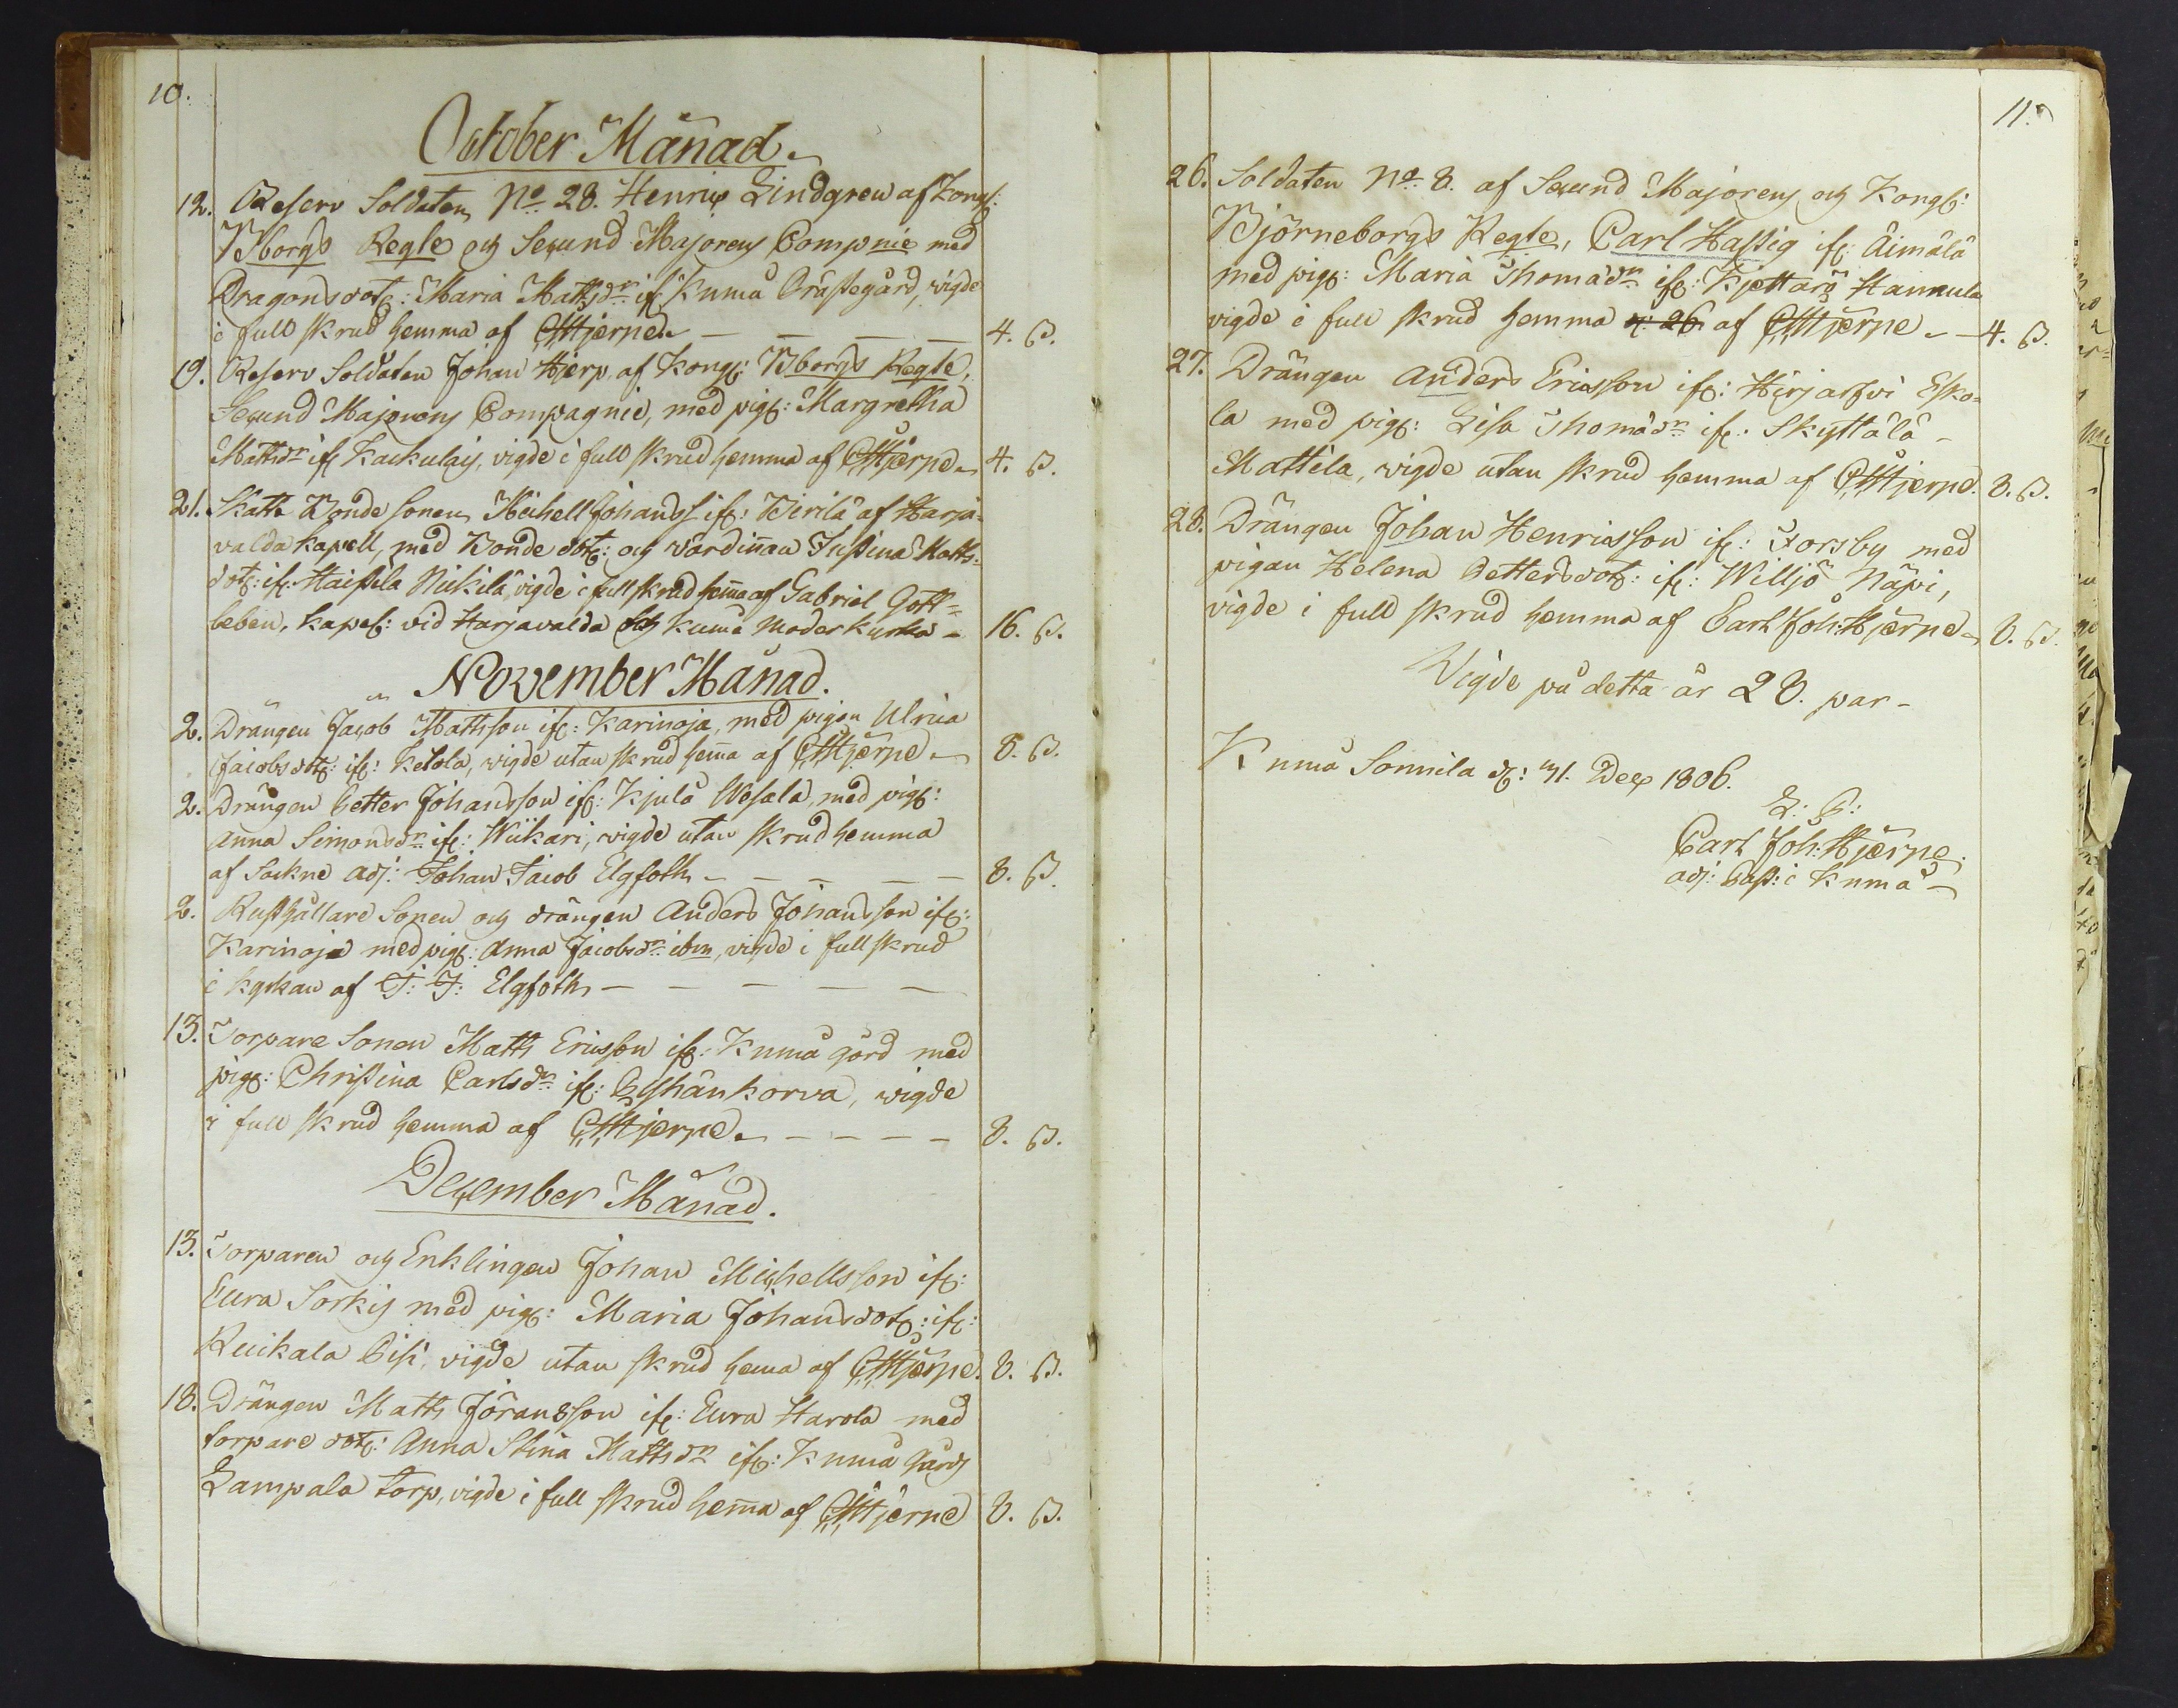 10.
October Månad.
12. Reserv Soldaten No 28. Henric Lindgren af Kongl:
Bborgs Regte och Second Majorens Compnie med
Dragons dotr: Maria Mattsdr ifr Kumå Prästegård, vigde
i full skrud hemma af CJHjerpe. — — — — 4. ß.
19. Reserv Soldaten Johan Hjerp af Kongl: Bborgs Regte,
Second Majorens Compagnie, med pig: Margretha
Mattsdr ifr Kaukulais, vigde i full skrud hemma af CJHjerpe. 4. ß.
21. Skatte Bonde Sonen Michell Johanss ifr: Pirilä af Harja-
valda kapell, med Bonde dotr: och värdinnan Justina Matts-
dotr: ifr: Haistila Nikilä, vigde i full skrud hemma af Gabriel Gott=
leben, kapel: vid Harjavalda och Kumå Moderkyrka - 16. ß.
November Månad.
2. Drängen Jacob Mattsson ifr: Karinoja, med pigan Ulrica
Jacobsdotr: ifr: Ketola, vigde utan skrud hemma af CJHjerpe. 8. ß.
2. Drängen Petter Johansson ifr: Kjula Wesala, med pig:
Anna Simonsdr ifr: Wiikari, vigde utan skrud hemma
af Sockne adj: Johan Jacob Elgfoth - — — — — 8. ß.
2. Rusthållare Sonen och drängen Anders Johansson ifr:
Karinoja med pig: Anna Jacobsdr ibm, vigde i full skrud
i kyrkan af J: J: Elgfoth — — — — — —
13. Torpare Sonen Matts Ericsson ifr: Kumå gård med
pig: Christina Carlsdr ifr: Pyhänkorva, vigde
i full skrud hemma af CJHjerpe. — — — — 8. ß.
December Månad.
13. Torparen och Enklingen Johan Michellsson ifr:
Eura Sorkis med pig: Maria Johansdotr: ifr:
Ruikala Piži, vigde utan skrud hemma af CJHjerpe. 8. ß.
18. Drängen Matts Jöransson ifr: Eura Harola med
torpare dotr: Anna Stina Mattsdr ifr: Kumå gårds
Lampala torp, vigde i full skrud hemma af CJHjerpe 8. ß.
11.
26. Soldaten No 8. af Second Majorens och Kongl:
Björneborgs Regte, Carl Hastig ifr: Äimälä
med pig: Maria Thomædr ifr: Kjettarö Hannula
vigde i full skrud hemma d: 26 af CJHjerpe. — 4. ß.
27. Drängen Anders Ericsson ifr: Hirjarfvi Esko-
la med pig: Lisa Thomædr ifr: Skyttälä -
Mattila, vigde utan skrud hemma af CJHjerpe. 8. ß.
28. Drängen Johan Henricsson ifr: Forsby med
pigan Helena Pettersdotr: ifr: Willjö Näpi,
vigde i full skrud hemma af Carl Joh: Hjerpe. 8. ß.
Vigde på detta år 28. par -
Kumå Sonnila d: 31. Dec 1806.
L: S:
Carl Joh: Hjerpe.
adj: Past: i Kumå -